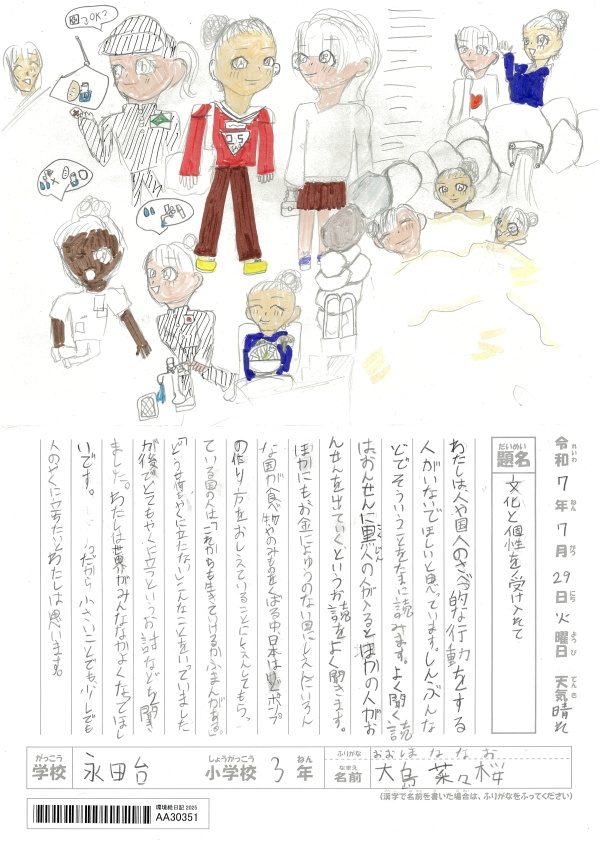 国るOK?
25
令和7年7月29日火曜日 天気晴れ
れいわ ねん がつ にち ようび てんき
だいめい
題名
文化と個性を受け入れて
わたしは人や国へのさべつ的な行動をする
人がいないでほしいと思っています。しんぶんな
どでそういうことをたまに読みます。よく聞く読
はおんせんに黒人の人が入るとほかの人がお
こくじん
んせんを出ていくというか読をよく聞きます。
ほかにも、お金によゆうのない国にしえんといろん
な国が食べ物やのみものをくばる中日本は
の作り方をおしえていることにしえんしてもらっ
ている国の人は「これからも生きていけるかふまんがある」
「どう持ちやくに立たない」こんなことをいていました
が後でとてもやくに立つというお討などを聞き
ました。わたしは世界がみんななかよくなってほし
いです。だから、小さいことでも、少しでも
人のやくに立ちたいとわたしは思います。
がっこう しょうがっこう ねん
学校 永田台 小学校 3年
ふりがな おおしまななお
なまえ
名前 大島菜々桜
(漢字で名前を書いた場合は、ふりがなをふってください)
環境絵日記 2025
AA30351